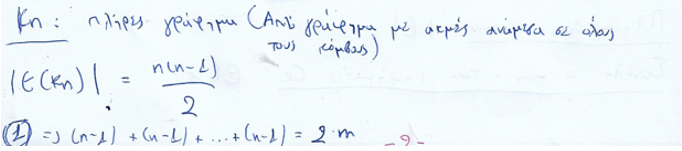 Kn: πλήρες γράφημα (Απλό γράφημα με ακμές ανάμεσα σε όλους
τους κόμβους)
|E(Kn)| = n(n-1)
2
① => (n-1) + (n-1) + ... + (n-1) = 2·m
-2-